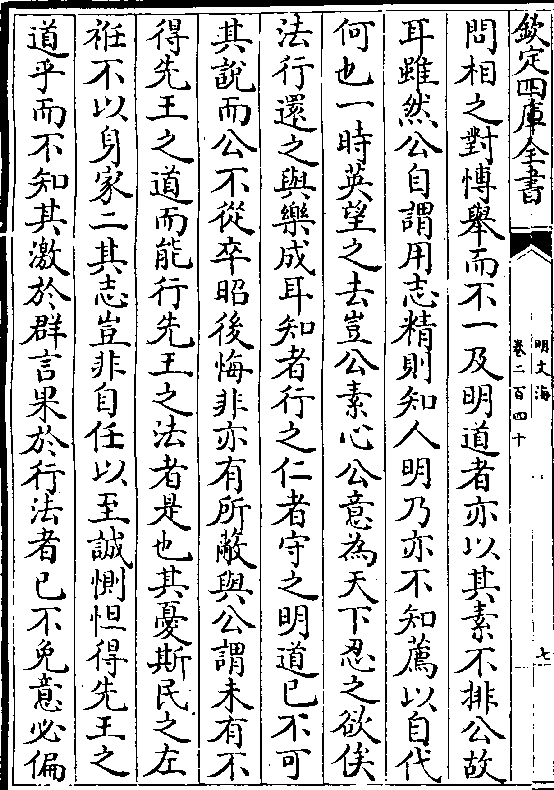 欽定四庫全書
明文海
卷二百四十
七
問相之對愽舉而不一及明道者亦以其素不排公故
耳雖然公自謂用志精則知人明乃亦不知薦以自代
何也一時英望之去豈公素心公意為天下忍之欲俟
法行還之與樂成耳知者行之仁者守之明道已不可
其說而公不從卒昭後悔非亦有所蔽與公謂未有不
得先王之道而能行先王之法者是也其憂斯民之左
袵不以身家二其志豈非自任以至誠惻怛得先王之
道乎而不知其激於群言果於行法者已不免意必偏